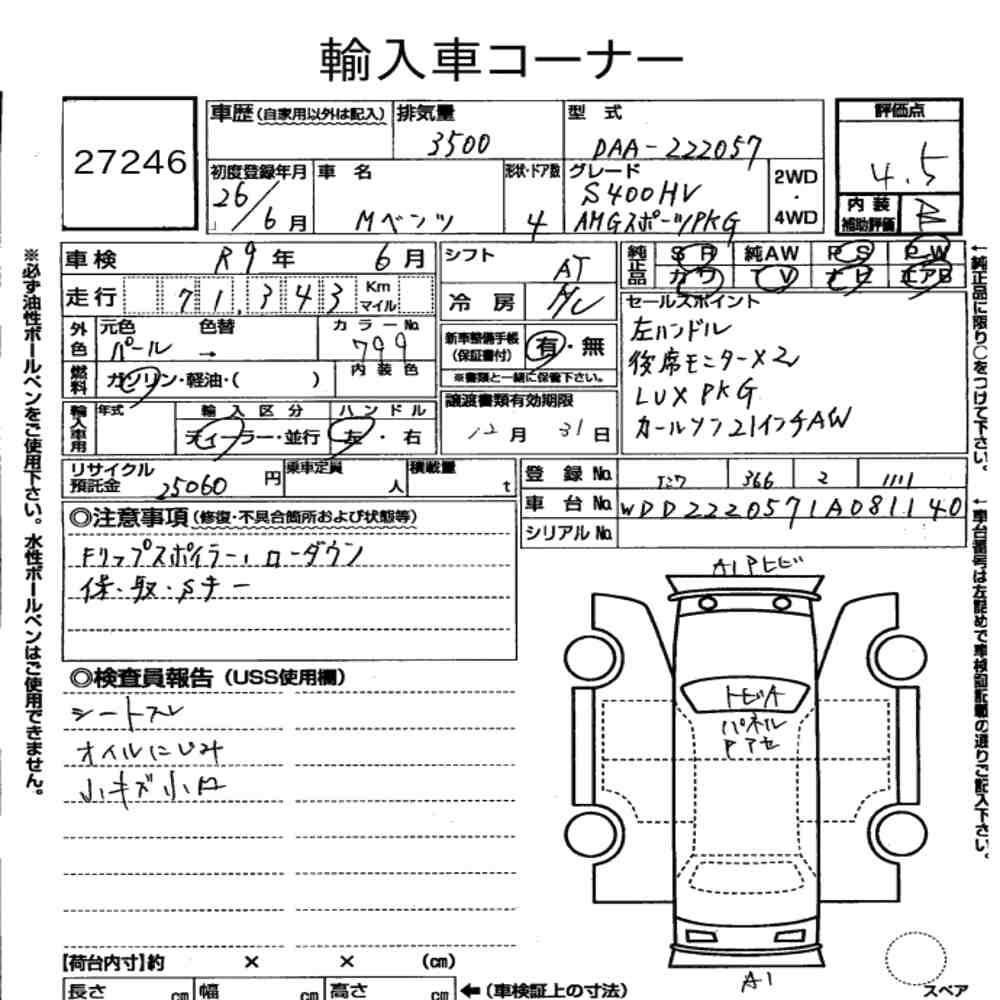 輸入車コーナー
27246
車歴(自家用以外は記入)
排気量
3500
型式
DAA-222057
評価点
4.5
初度登録年月
26/6月
車名
Mベンツ
形状・ドア数
4
グレード
S400HV
AMGスポーツPKG
2WD
・
4WD
内装
補助評価
B
車検 R9年 6月
シフト
AT
純正品
SR 純AW PS PW
カワ TV ナビ エアB
走行 71,343 Km マイル
冷房
外色
元色 色替
パール →
カラーNo.
799
内装色
新車整備手帳
(保証書付)
有・無
※書類と一緒に保管下さい。
セールスポイント
左ハンドル
後席モニター×2
LUX PKG
カールソン21インチAW
燃料
ガソリン・軽油・( )
譲渡書類有効期限
12月 31日
輸入車用
年式
輸入区分
ディーラー・並行
ハンドル
左・右
リサイクル
預託金
25060円
乗車定員
人
積載量
t
登録No. 366 2 1111
車台No. WDD2220571A081140
シリアルNo.
◎注意事項(修復・不具合箇所および状態等)
Fリップスポイラー、ローダウン
保・取・Sキー
◎検査員報告(USS使用欄)
シートスレ
オイルにじみ
小キズ小凹
A1PトビA
トビA
パネル
Pアセ
A1
スペア
【荷台内寸】約 × × (cm)
長さ cm 幅 cm 高さ cm ←(車検証上の寸法)
※必ず油性ボールペンをご使用下さい。水性ボールペンはご使用できません。
←純正品に限り○をつけて下さい。
←車台番号は左詰めで車検証記載の通りご記入下さい。